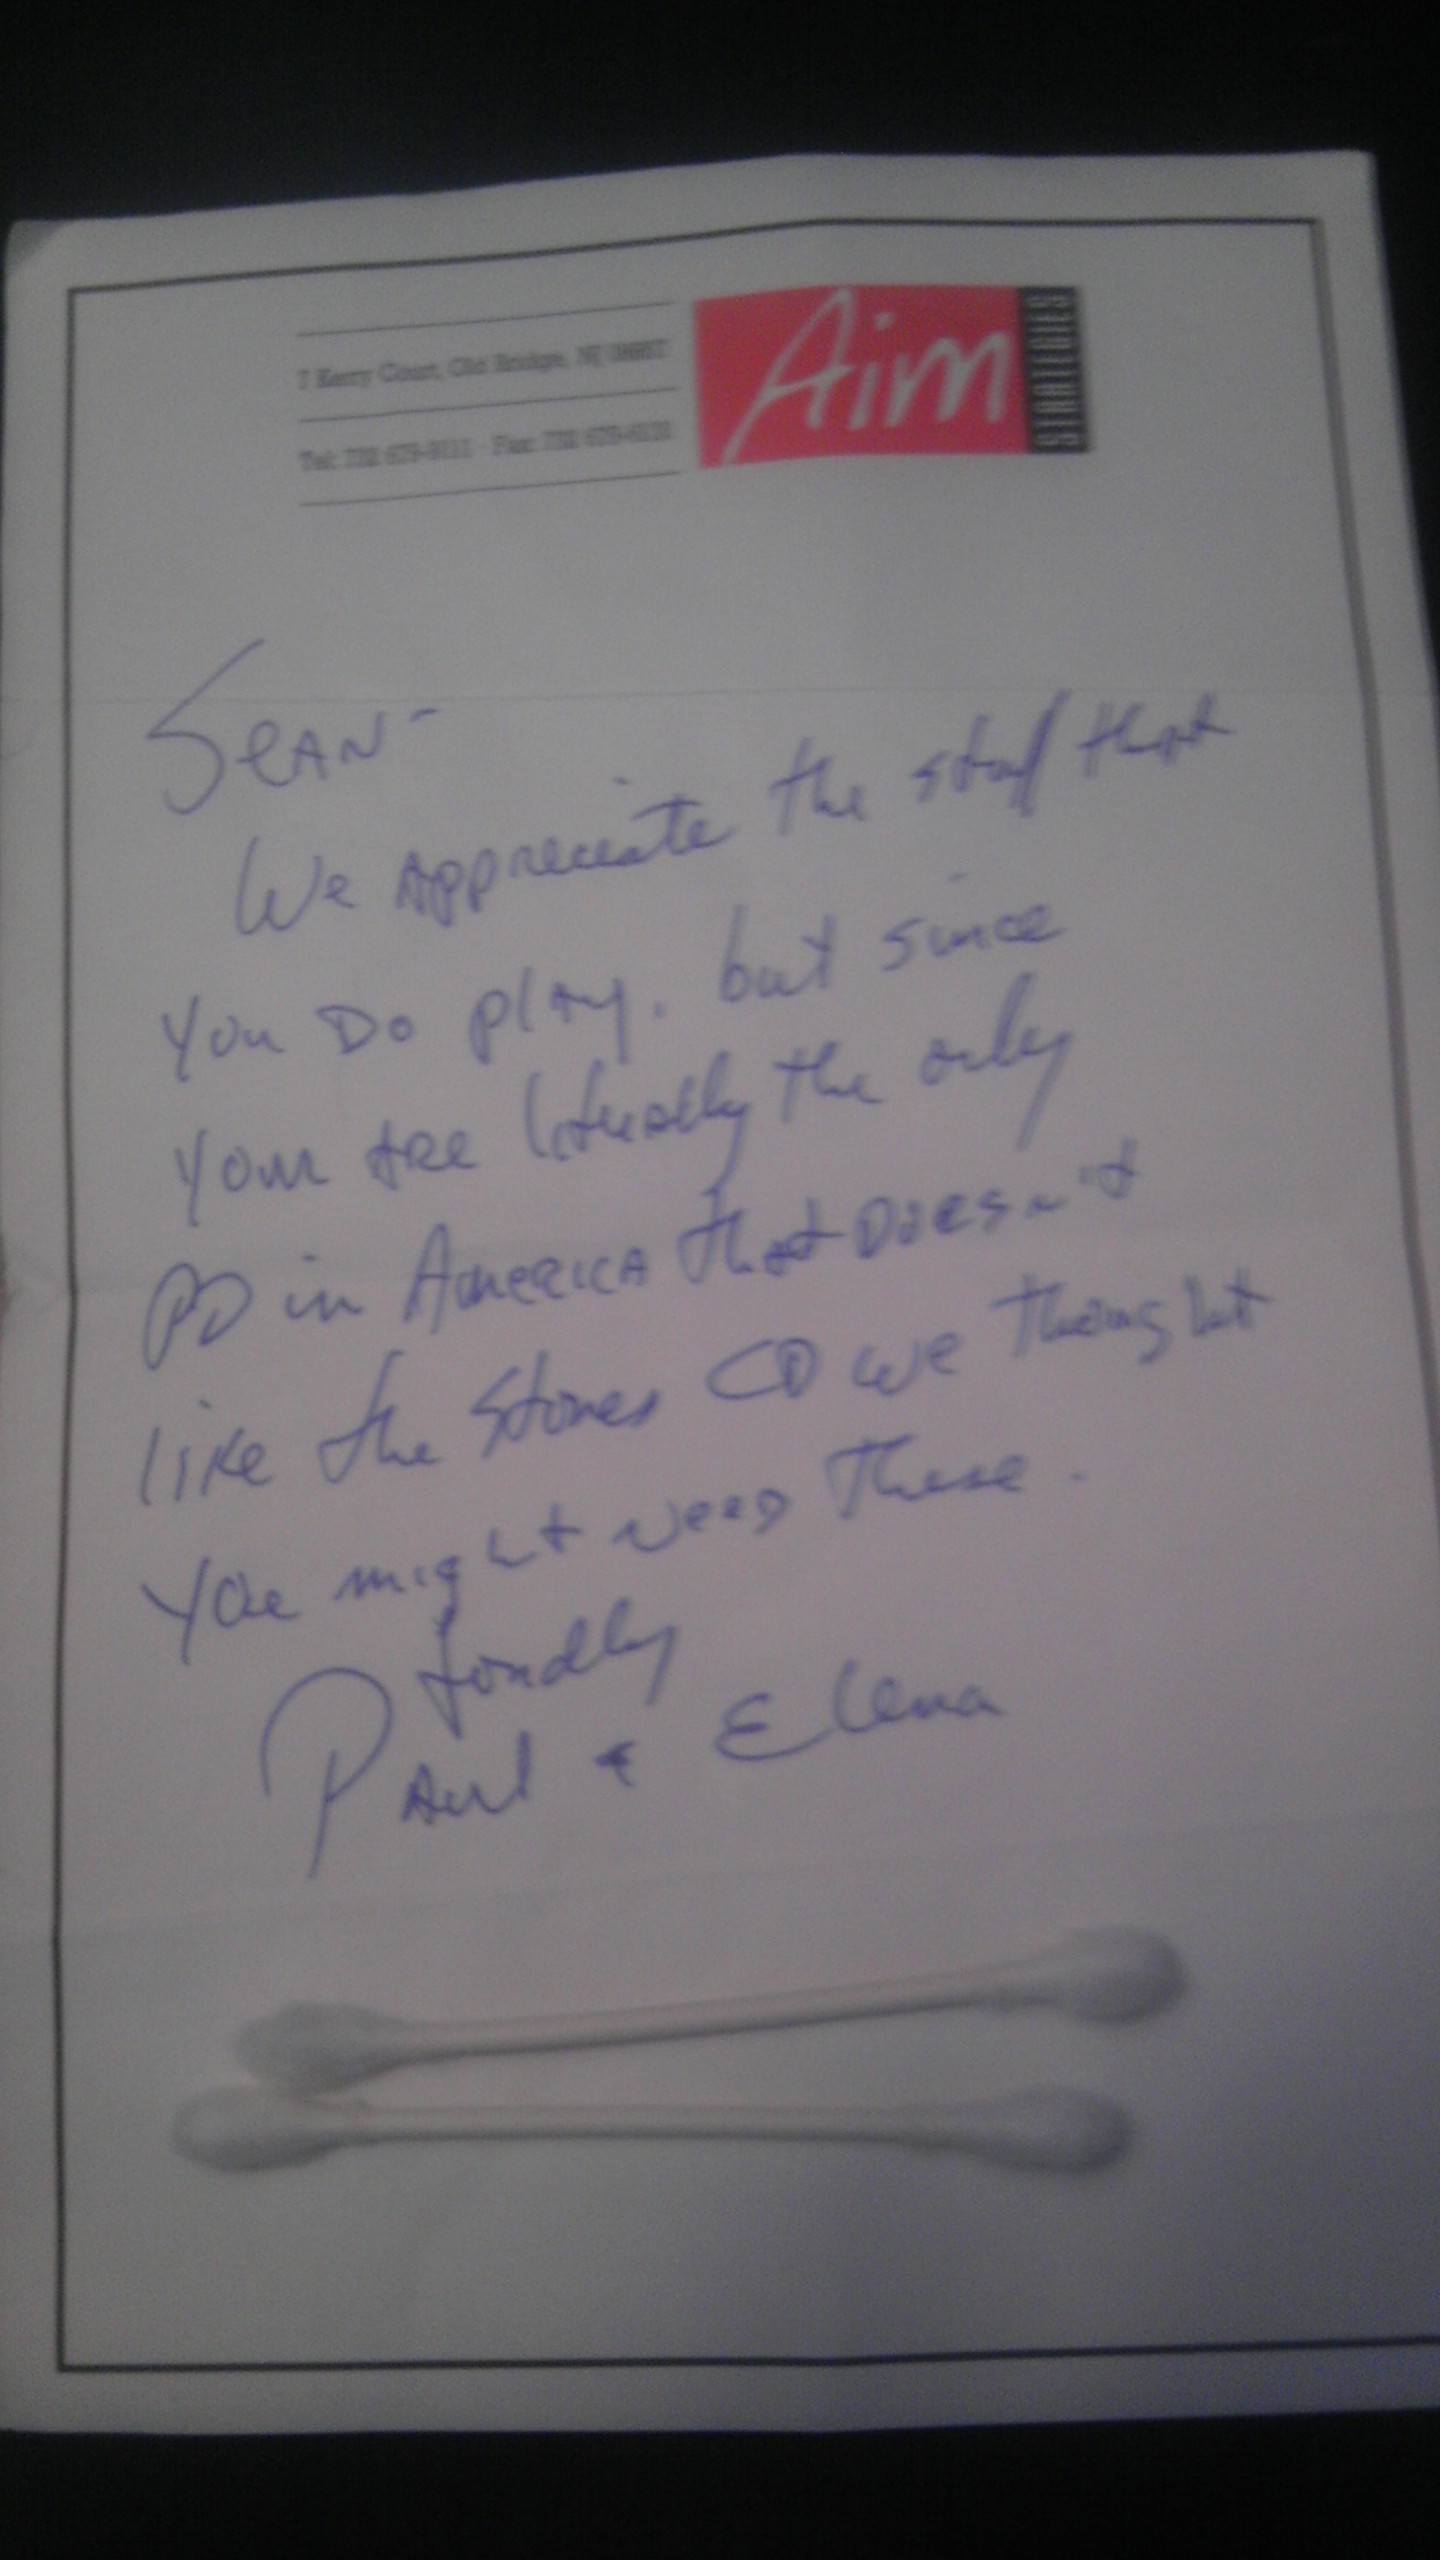 7 Kerry Court, Old Bridge, NJ
Tel: 732 679-9111 · Fax: 732
Aim
STRATEGIES
Sean-
We Appreciate the stuff that
You Do play. but since
Your are literally the only
PD in America that Doesn't
like the Stones CD we thought
You might need These.
fondly
Paul & Elena